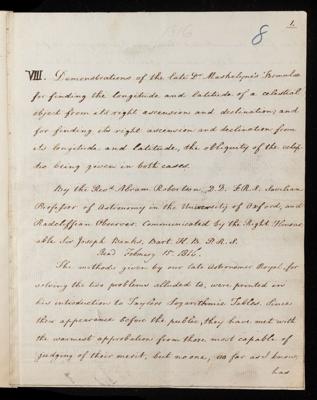 1.
8
VIII. Demonstrations of the late Dr Maskelyne's Formulæ
for finding the longitude and latitude of a celestial
object from its right ascension and declination; and
for finding its right ascension and declination from
its longitude and latitude, the obliquity of the eclip
tic being given in both cases.
By the Revd Abram Robertson, D.D. F.R.S. Savilian
Professor of Astronomy in the University of Oxford, and
Radcliffian Observer. Communicated by the Right Honour
able Sir Joseph Banks, Bart. K.B. P.R.S.
Read February 15. 1816.
The methods given by our late Astronomer Royal, for
solving the two problems alluded to, were printed in
his introduction to Taylor's Logarithmic Tables. Since
their appearance before the public, they have met with
the warmest approbation from those most capable of
judging of their merit, but no one, as far as I know,
has